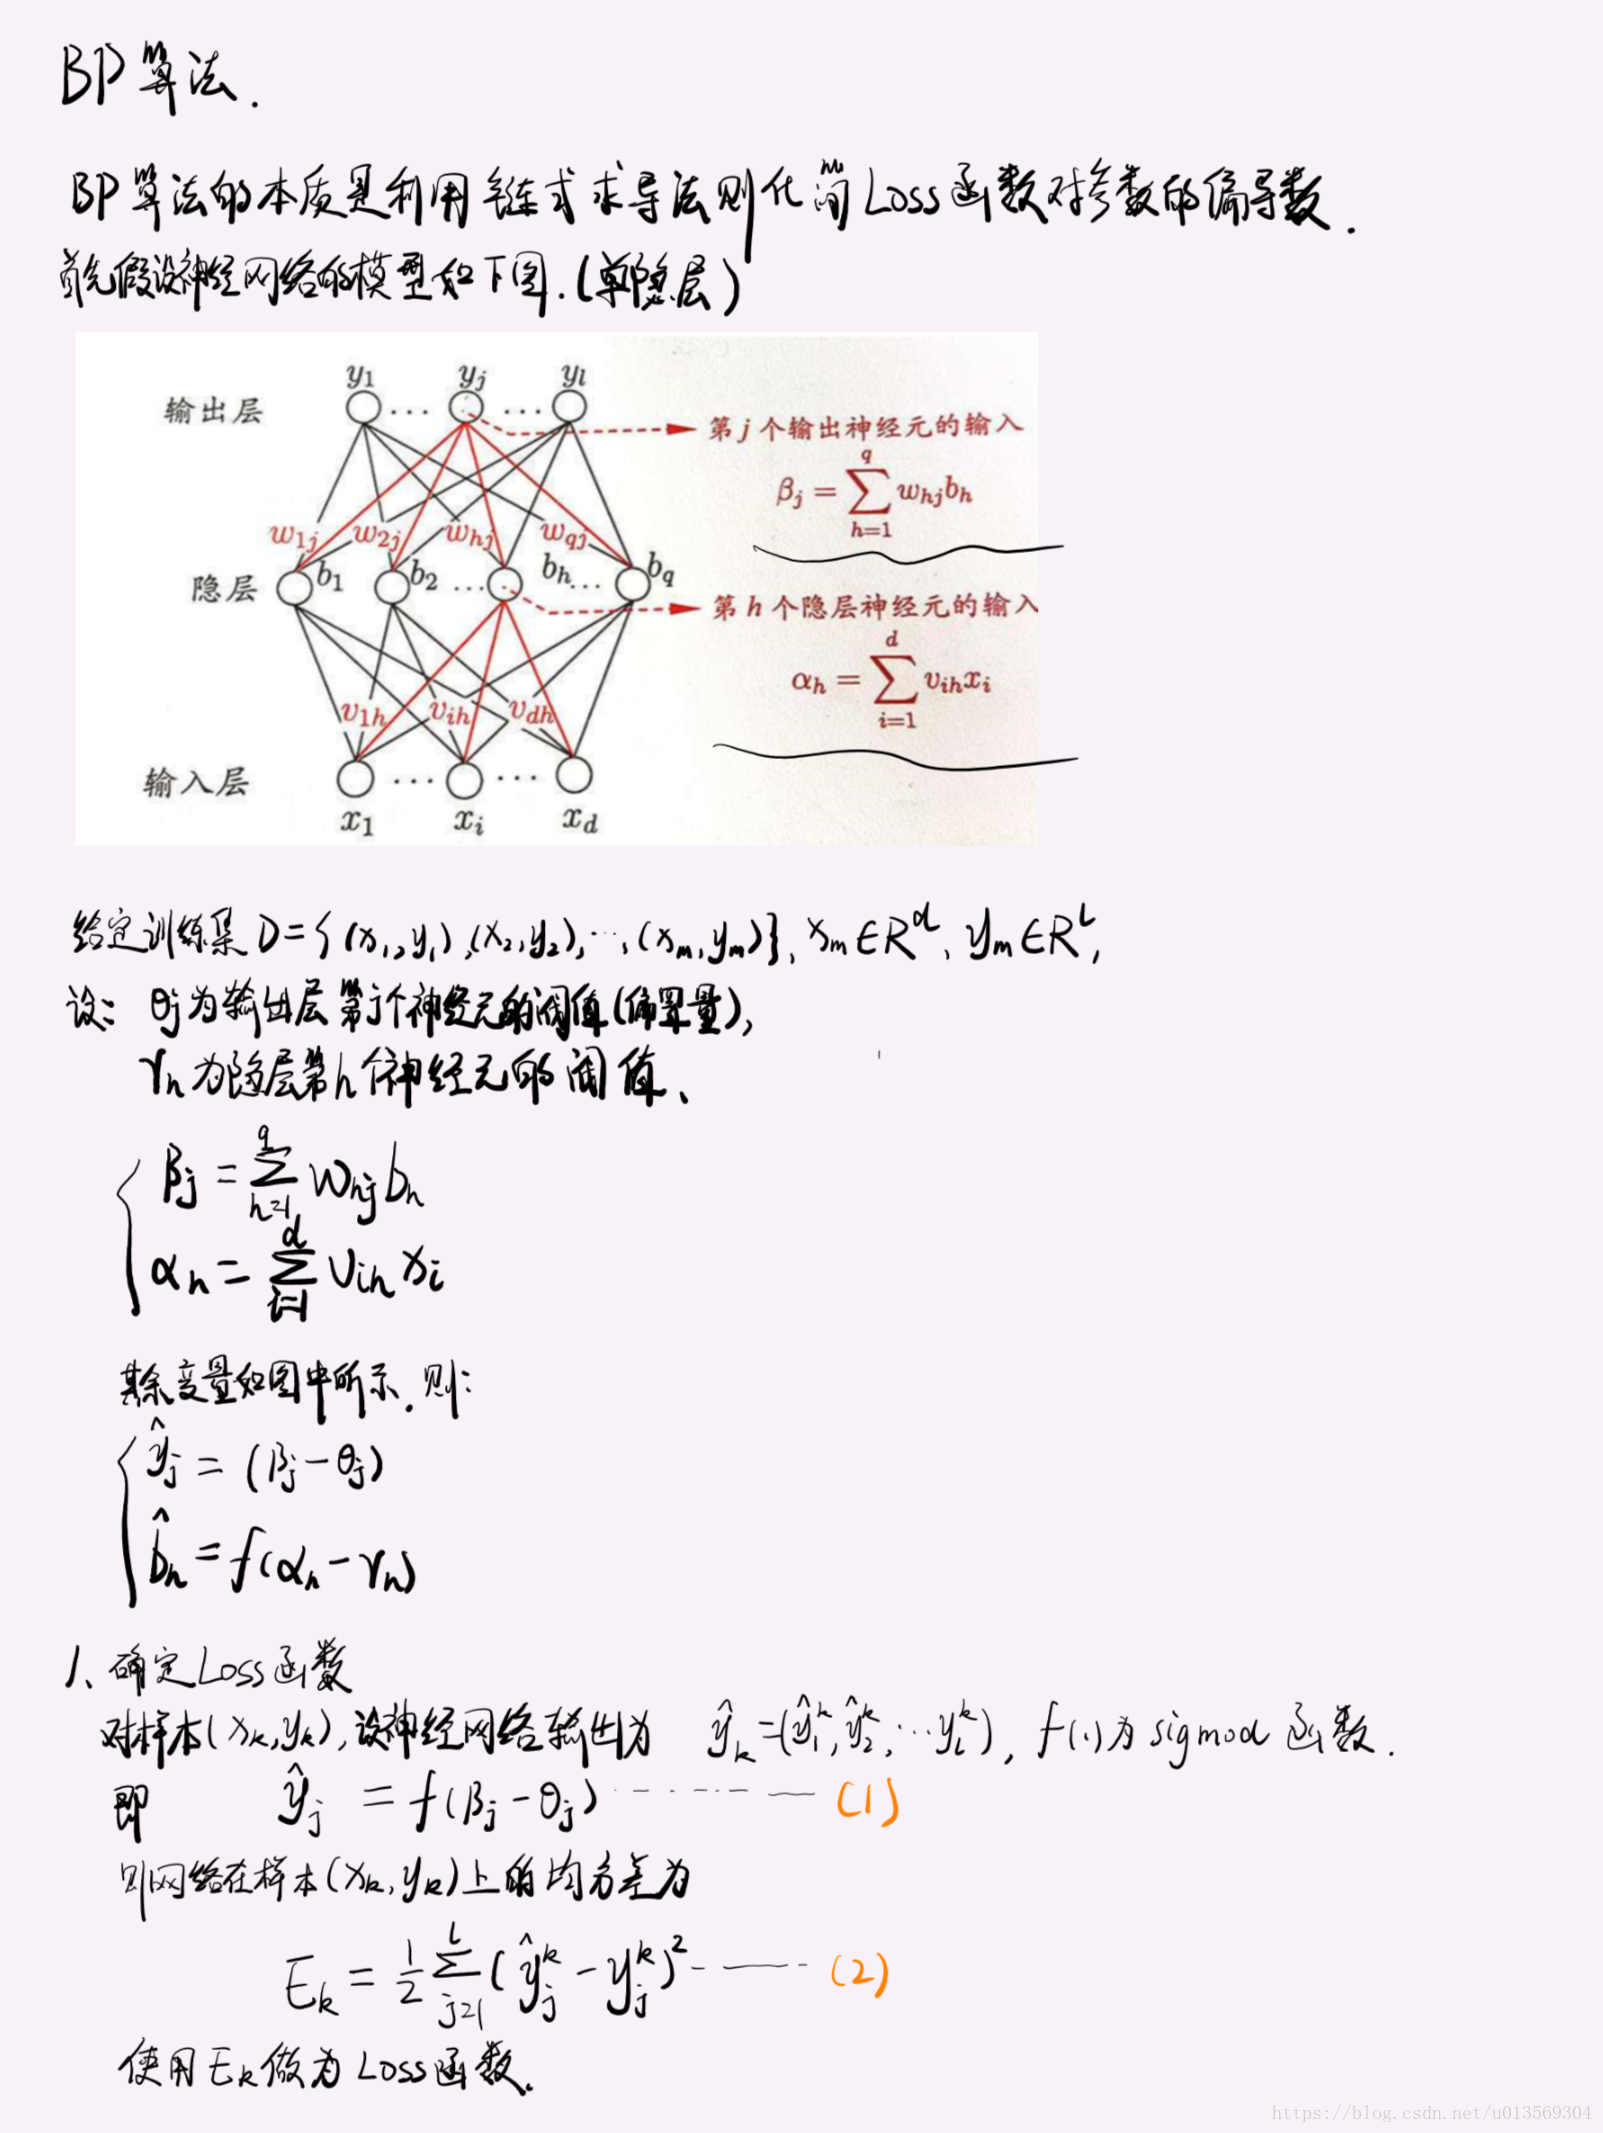 BP算法.
BP算法的本质是利用链式求导法则化简Loss函数对参数的偏导数.
首先假设神经网络的模型如下图.(单隐层)
y1 yj yl
输出层 ... ...
第 j 个输出神经元的输入
βj = ∑_{h=1}^{q} w_{hj} b_h
w1j w2j whj wqj
隐层 b1 b2 ... bh ... bq
第 h 个隐层神经元的输入
αh = ∑_{i=1}^{d} v_{ih} x_i
v1h vih vdh
输入层 ... ...
x1 xi xd
给定训练集D={(x1,y1),(x2,y2),…,(xm,ym)}, xm∈R^d, ym∈R^L,
设: θj为输出层第j个神经元的阈值(偏置量),
γh为隐层第h个神经元的阈值、
βj = ∑_{h=1}^{q} w_{hj} b_h
αh = ∑_{i=1}^{d} v_{ih} x_i
其余变量如图中所示.则:
ŷj = (βj-θj)
b̂h = f(αh-γh)
1、确定Loss函数
对样本(xk,yk),设神经网络输出为 ŷk=(ŷ1^k,ŷ2^k,…yL^k), f(.)为sigmod函数.
即 ŷj = f(βj-θj) (1)
则网络在样本(xk,yk)上的均方差为
Ek = 1/2 ∑_{j=1}^{L} (ŷj^k - yj^k)^2 (2)
使用Ek做为Loss函数.
https://blog.csdn.net/u013569304